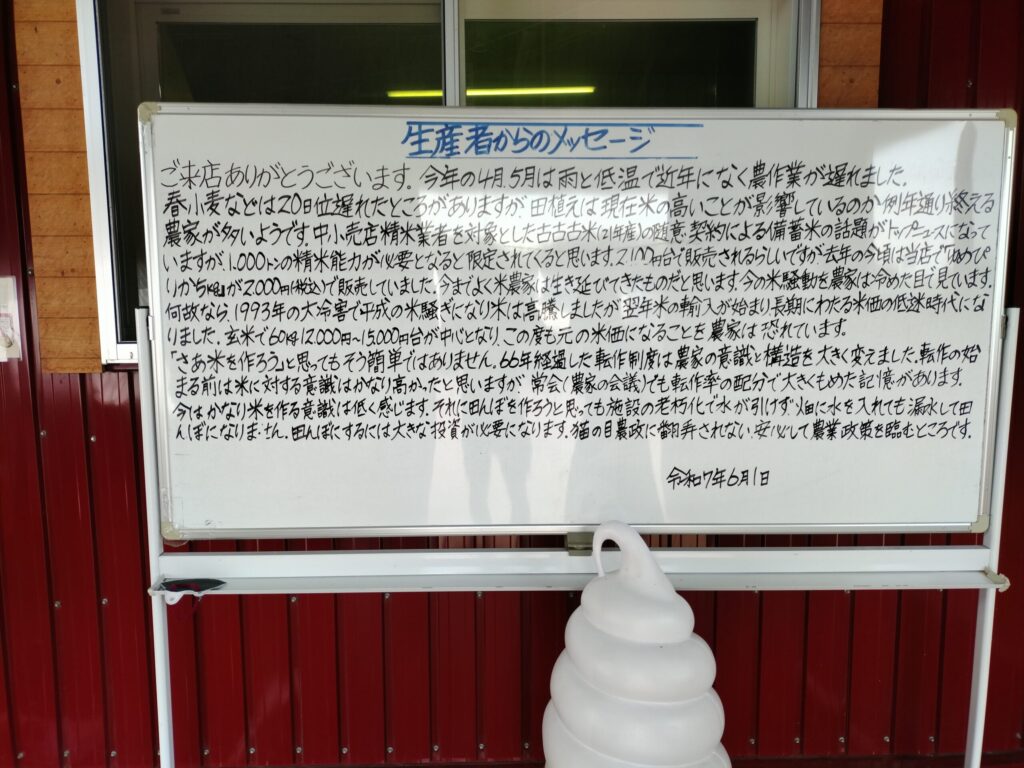 生産者からのメッセージ
ご来店ありがとうございます。今年の4月、5月は雨と低温で近年になく農作業が遅れました。
春小麦などは20日位遅れたところがありますが、田植えは現在米の高いことが影響しているのか例年通り終える
農家が多いようです。中小売店、精米業者を対象とした古古古米(21年産)の随意契約による備蓄米の話題がトップニュースになって
いますが、1,000トンの精米能力が必要となると限定されてくると思います。2100円台で販売されるらしいですが去年の今頃は当店で「ゆめぴ
りか5kg」が2000円(税込)で販売していました。今までよく米農家は生き延びてきたものだと思います。今の米騒動を農家は冷めた目で見ています。
何故なら、1993年の大冷害で平成の米騒ぎになり米は高騰しましたが翌年米の輸入が始まり長期にわたる米価の低迷時代にな
りました。玄米で60kg12,000円〜15,000円台が中心となり、この度も元の米価になることを農家は恐れています。
「さあ米を作ろう」と思ってもそう簡単ではありません。66年経過した転作制度は農家の意識と構造を大きく変えました。転作の始
まる前は米に対する意識はかなり高かったと思いますが、常会(農家の会議)でも転作率の配分で大きくもめた記憶があります。
今はかなり米を作る意識は低く感じます。それに田んぼを作ろうと思っても施設の老朽化で水が引けず、畑に水を入れても漏水して田
んぼになりません。田んぼにするには大きな投資が必要になります。猫の目農政に翻弄されない、安心して農業政策を臨むところです。
令和7年6月1日